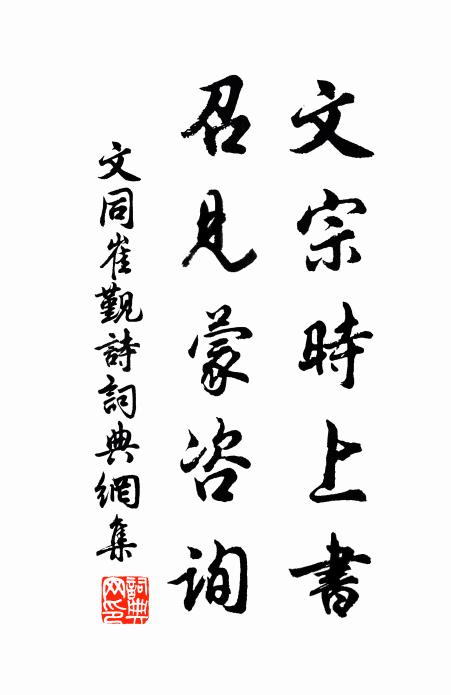 文宗時上書
召見蒙咨询
文同崔觐詩詞典網集
詞典網印